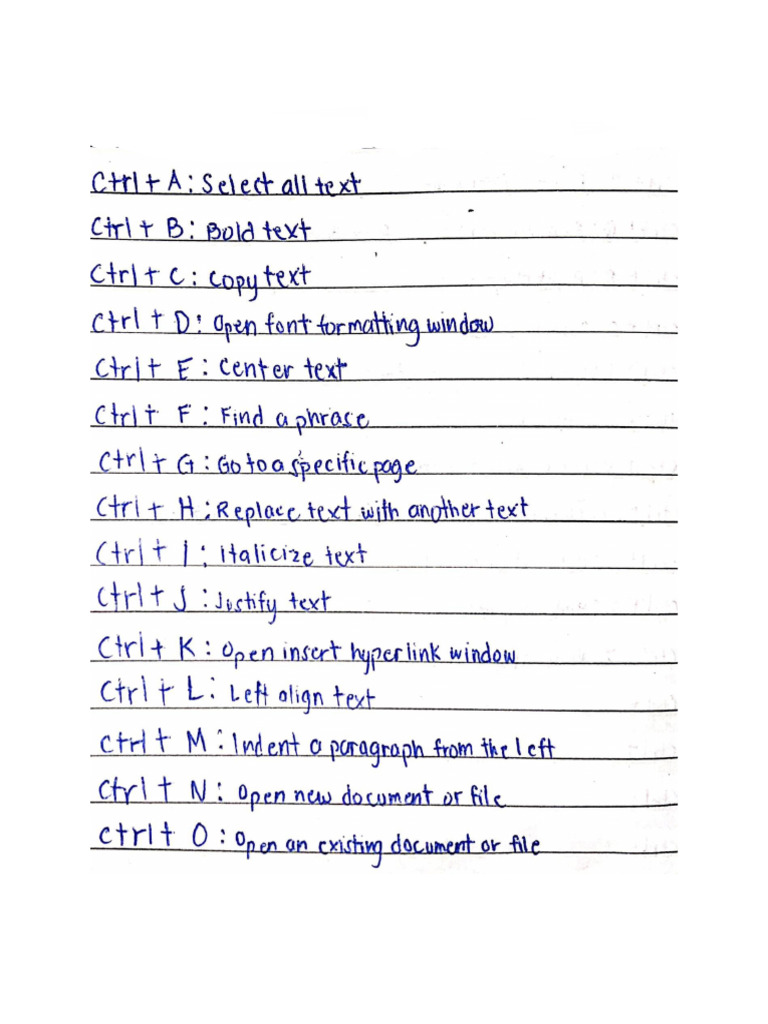 Ctrl+ A: Select all text
Ctrl+ B: Bold text
Ctrl+ C: Copy text
Ctrl+ D: Open font formatting window
Ctrl+ E: Center text
Ctrl+ F: Find a phrase
Ctrl+ G: Go to a specific page
Ctrl+ H: Replace text with another text
Ctrl+ I: Italicize text
Ctrl+ J: Justify text
Ctrl+ K: Open insert hyperlink window
Ctrl+ L: Left align text
Ctrl+ M: Indent a paragraph from the left
Ctrl+ N: Open new document or file
Ctrl+ O: Open an existing document or file